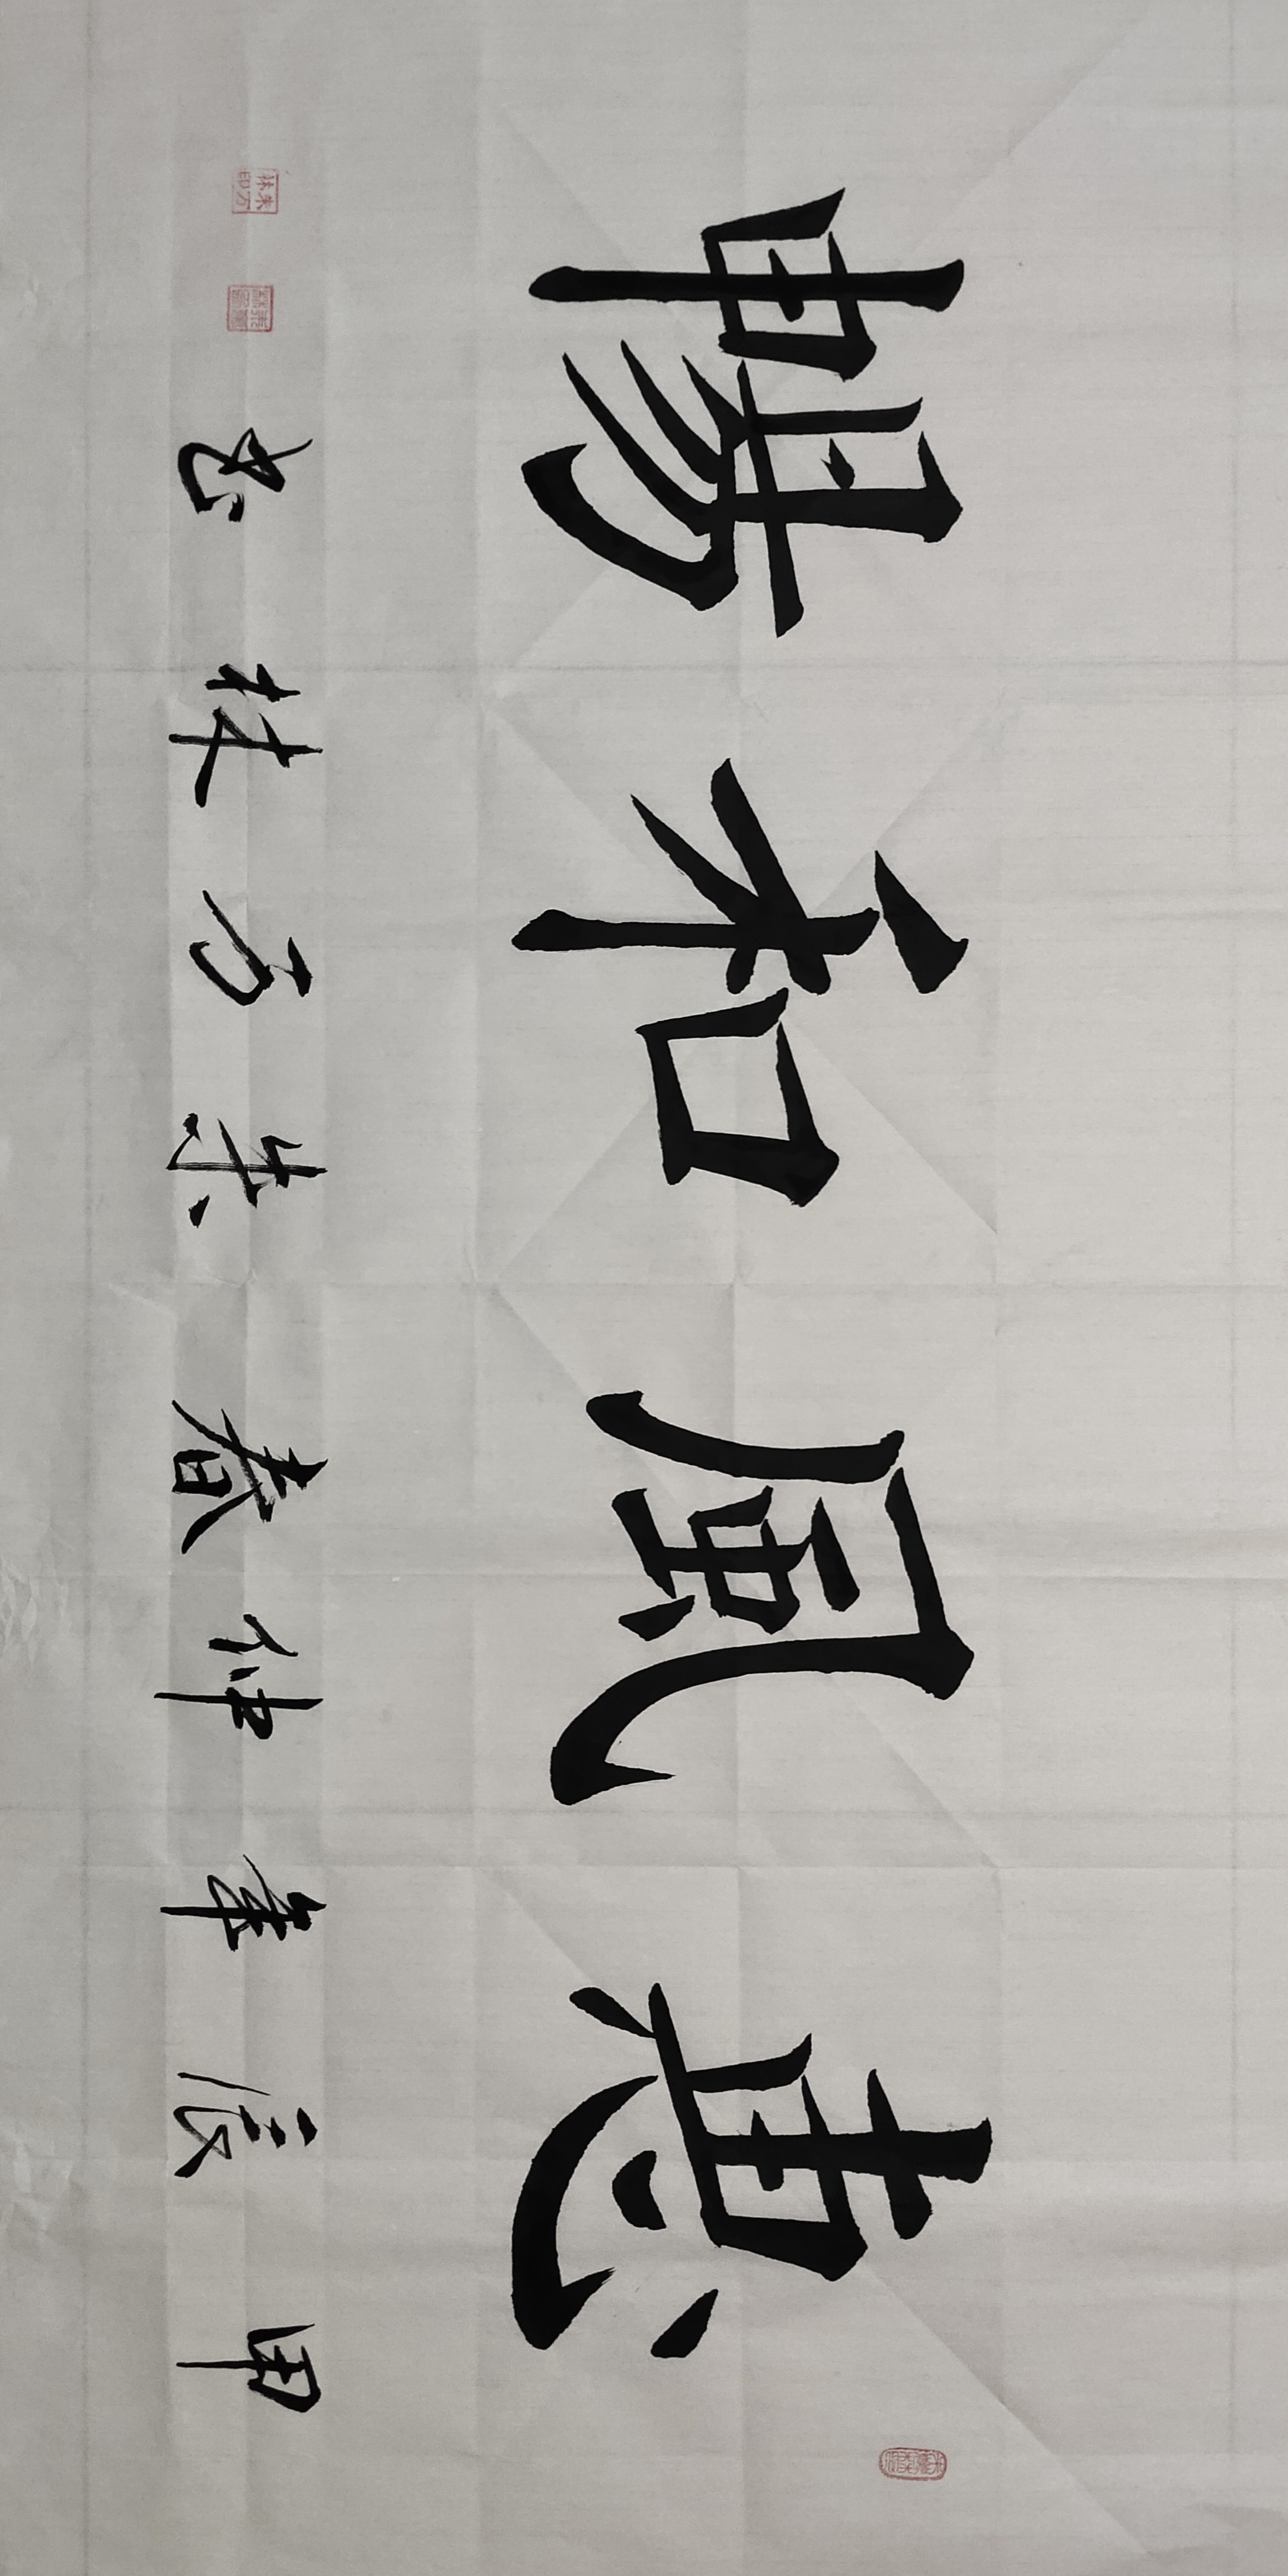 惠風和暢
甲辰年仲春朱万林书
朱万林印